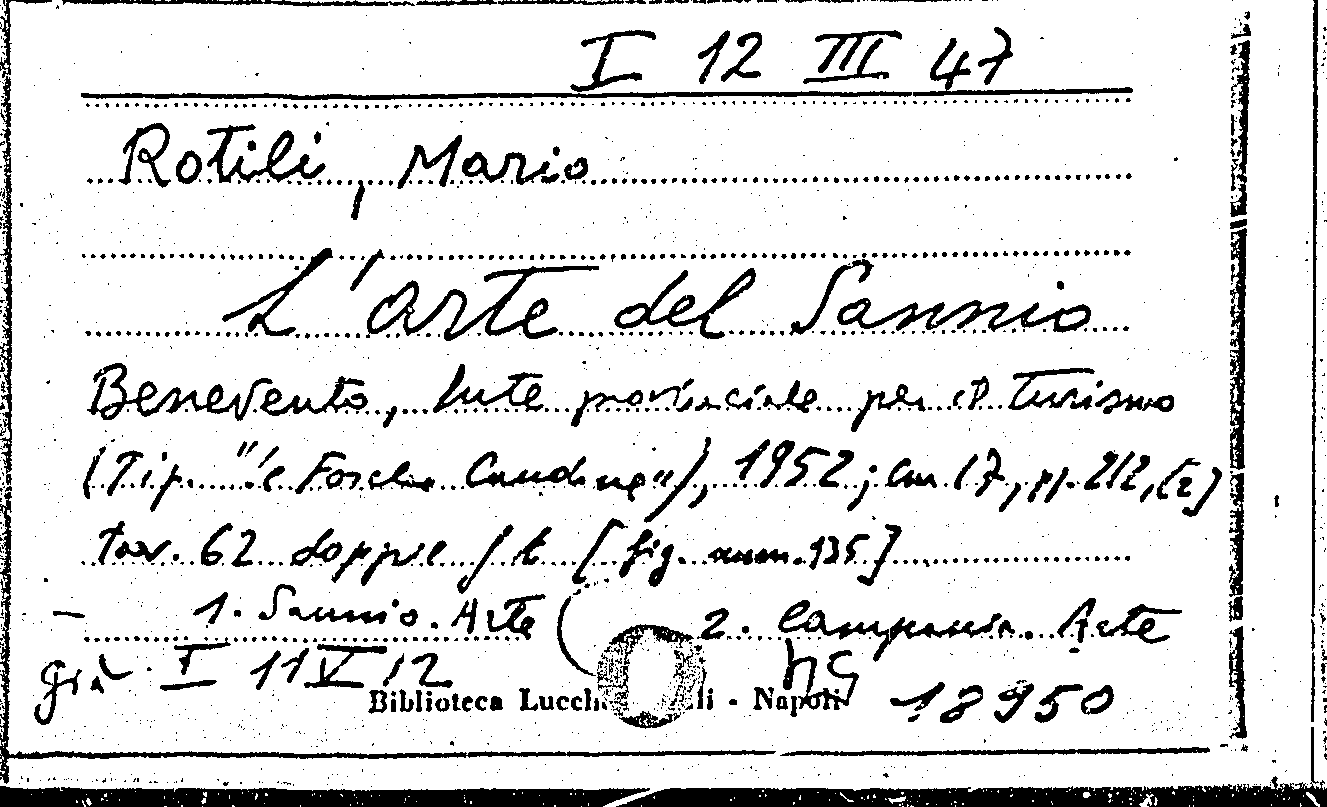 I 12 III 47
Rotili, Mario
L'arte del Sannio
Benevento, Ente provinciale per il turismo
(Tip. "Le Forche Caudine"), 1952; cm 17, pp. 212, [2]
tav. 62 doppie f. t. [fig. num. 135]
- 1. Sannio. Arte 2. Campania. Arte
già I 11 V 12
Biblioteca Lucch li - Napoli 18950